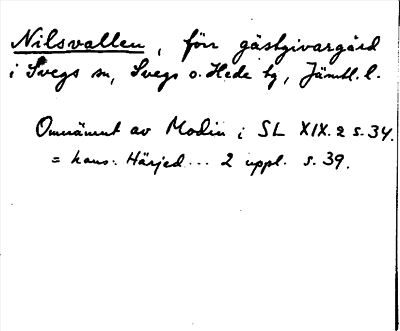 Nilsvallen, förr gästgivargård
i Svegs sn, Svegs o. Hede tg, Jämtl. l.
Omnämnt av Modin i SL XIX. 2 s. 34.
= hans: Härjed... 2 uppl. s. 39.